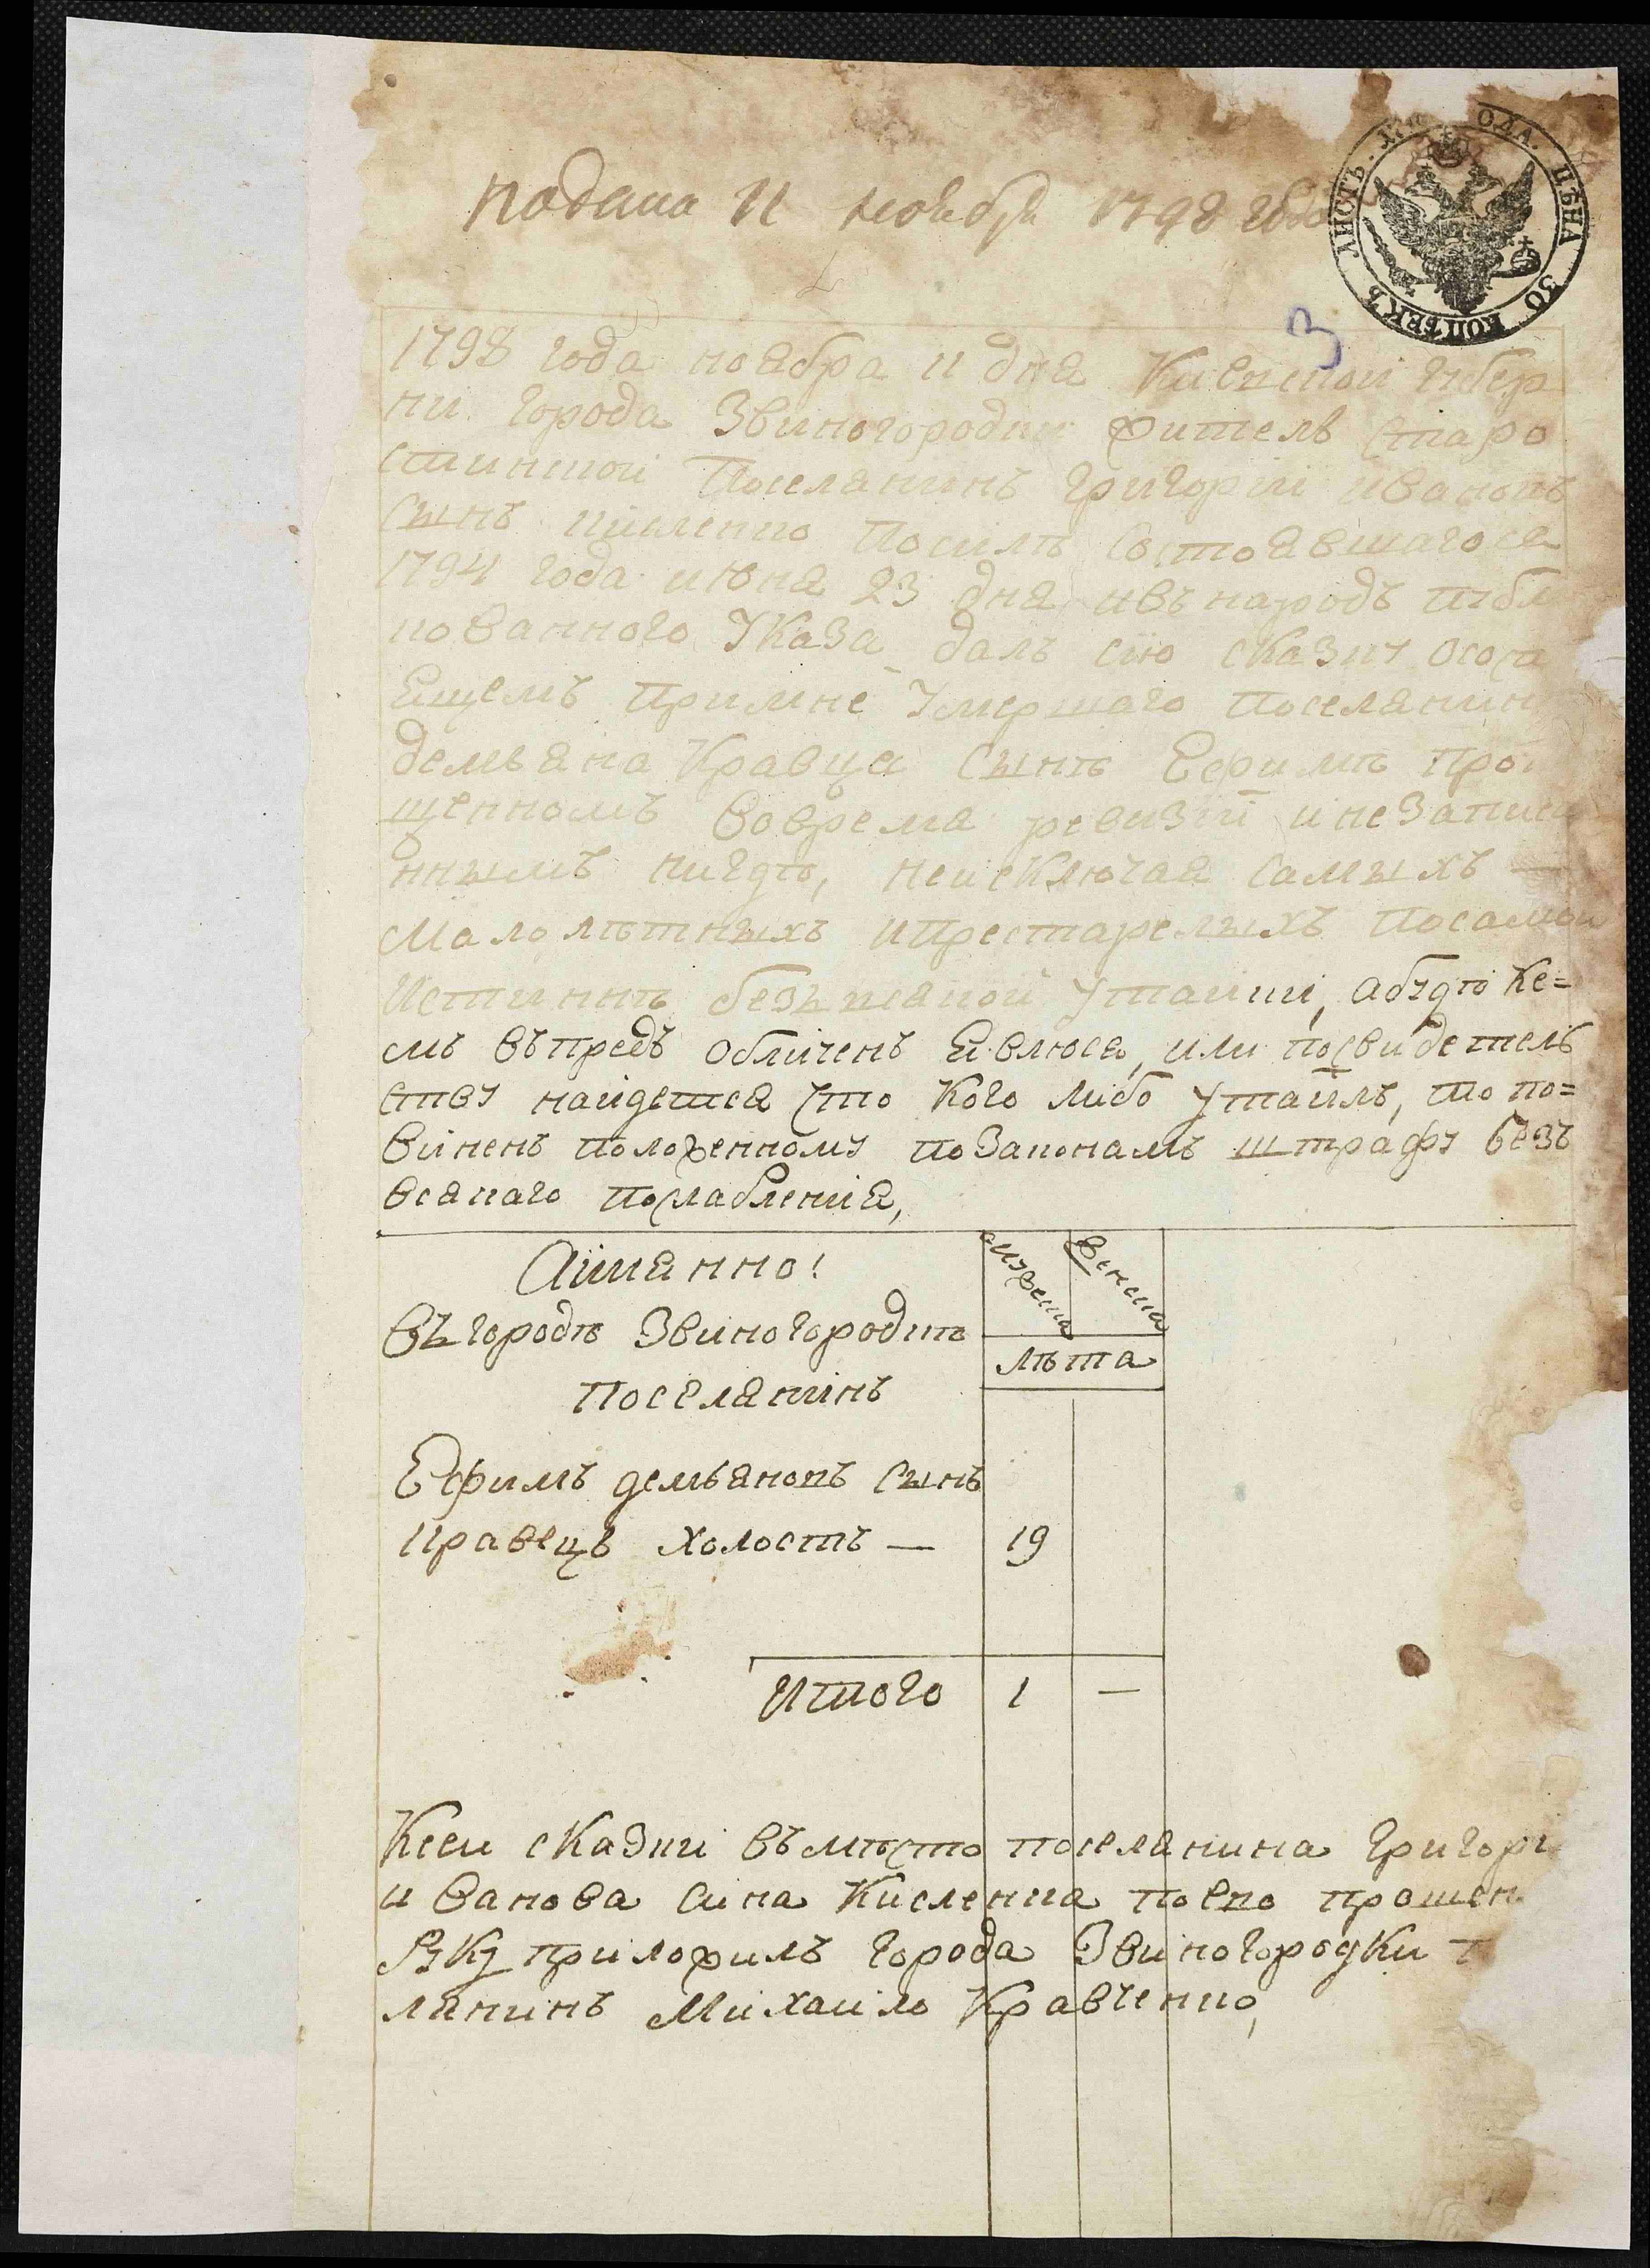 подана 11 ноября 1798 года
ЛИСТЪ. ОДА. ЦѢНА 30 КОПѢЕКЪ
3
1798 года ноября 11 дня Киевской губер
ни города Звиногородки житель старо
стинской поселянинъ григорій ивановъ
сынъ кисленко посилѣ состоявшагося
1794 года июня 23 дня ивъ народъ публ
кованного указа далъ сію сказку ососта
ящемъ примне умершаго поселянин
демьяна кравца сынѣ Ефимѣ про
щенномъ вовремя ревизіи и незаписа
ннымъ нигдѣ, неисключая самыхъ —
малолѣтныхъ ипрестарелыхъ посамой
истиннѣ безъ всякой утайки, абудѣ ке=
мъ въпредъ обличенъ явлюся, или посвидетель
ству найдется что кого либо утаилъ, то по=
виненъ положенному позаконамъ штрафу безъ
всякаго послабления,
Аимянно:
мужеска
женска
въ городѣ Звиногородкѣ
лѣта
поселянинъ
Ефимъ демьяновъ сынъ
кравецъ холостъ — 19
итого 1 —
Ксеи сказки въмѣсто поселянина григори
иванова сина Кисленка поево прошен
руку приложилъ города Звиногородки п
лянинъ Михаило Кравченко,